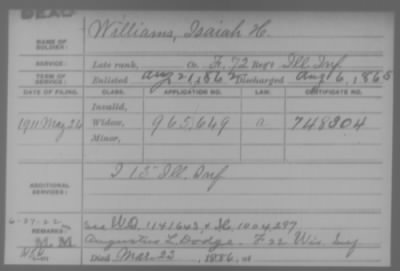 DEAD
NAME OF SOLDIER: Williams, Isaiah H.
SERVICE: Late rank, Co. F, 72 Reg't Ill. Inf.
TERM OF SERVICE: Enlisted Aug 21, 1862 Discharged Aug 6, 1865
DATE OF FILING. CLASS. APPLICATION NO. LAW. CERTIFICATE NO.
Invalid,
1911 May 26 Widow, 965,649 a 748304
Minor,
ADDITIONAL SERVICES: I 15" Ill. Inf
6-27-22 see W.O. 1141643, & 1004,297
REMARKS: M. M. Augustus L. Dodge. F 22 Wis. Inf
Died Mar. 23, 1886, at